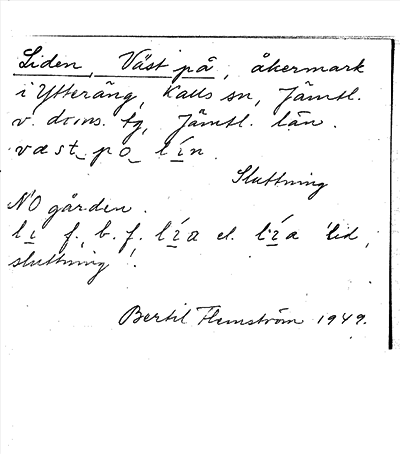 Liden, Väst på, åkermark
i Ytteräng, Kalls sn, Jämtl.
v. doms. tg, Jämtl. län.
væst_ po_ lín.
Sluttning
NO gården.
lı f., b. f. lía el. lía 'lid,
sluttning'.
Bertil Flemström 1949.